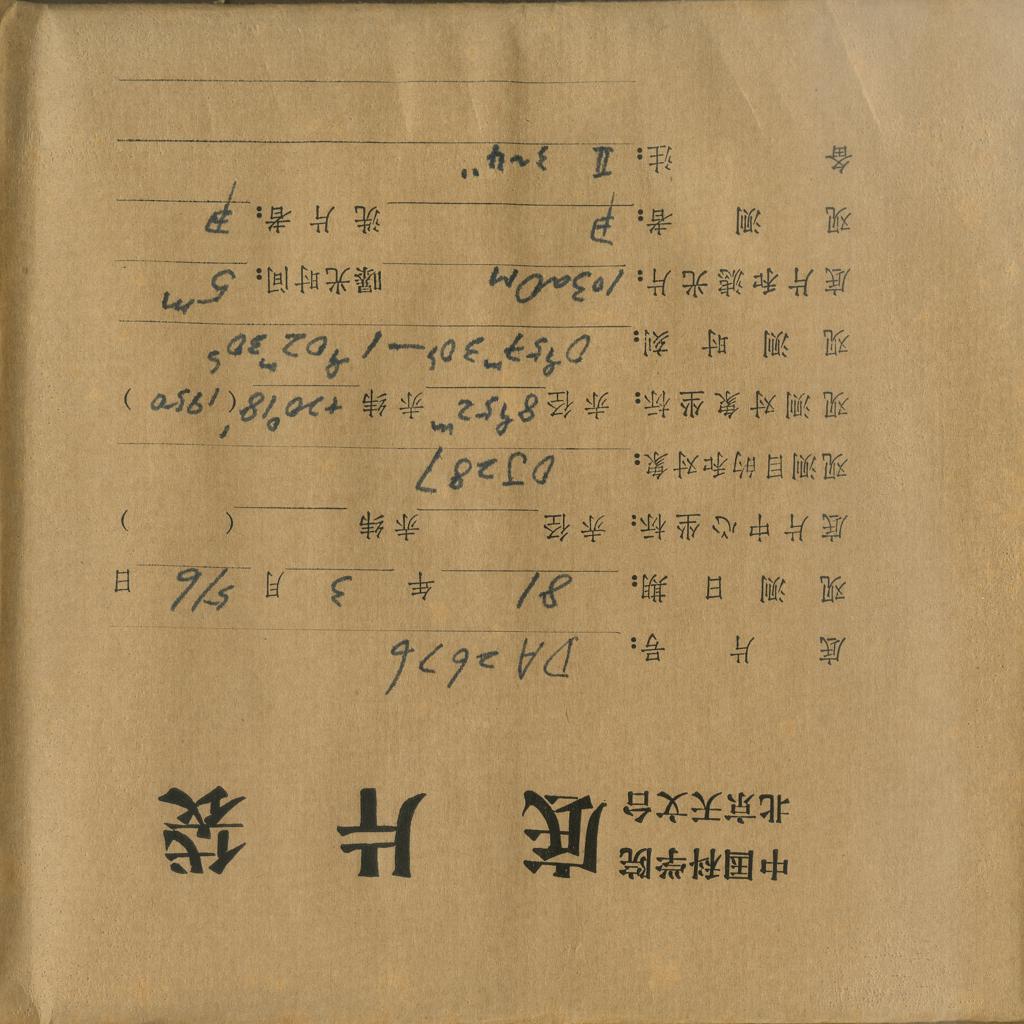 中国科学院
北京天文台 底片袋
底片号: DA2676
观测日期: 81年3月5/6日
底片中心坐标: 赤径 赤纬 ( )
观测目的和对象: OJ287
观测对象坐标: 赤径 8ʰ52ᵐ 赤纬 +20°18′ (1950)
观测时刻: 0ʰ57ᵐ30ˢ—1ʰ02ᵐ30ˢ
底片和滤光片: 103aO 曝光时间: 5ᵐ
观测者: 洗片者:
备注: Ⅱ 3~4"